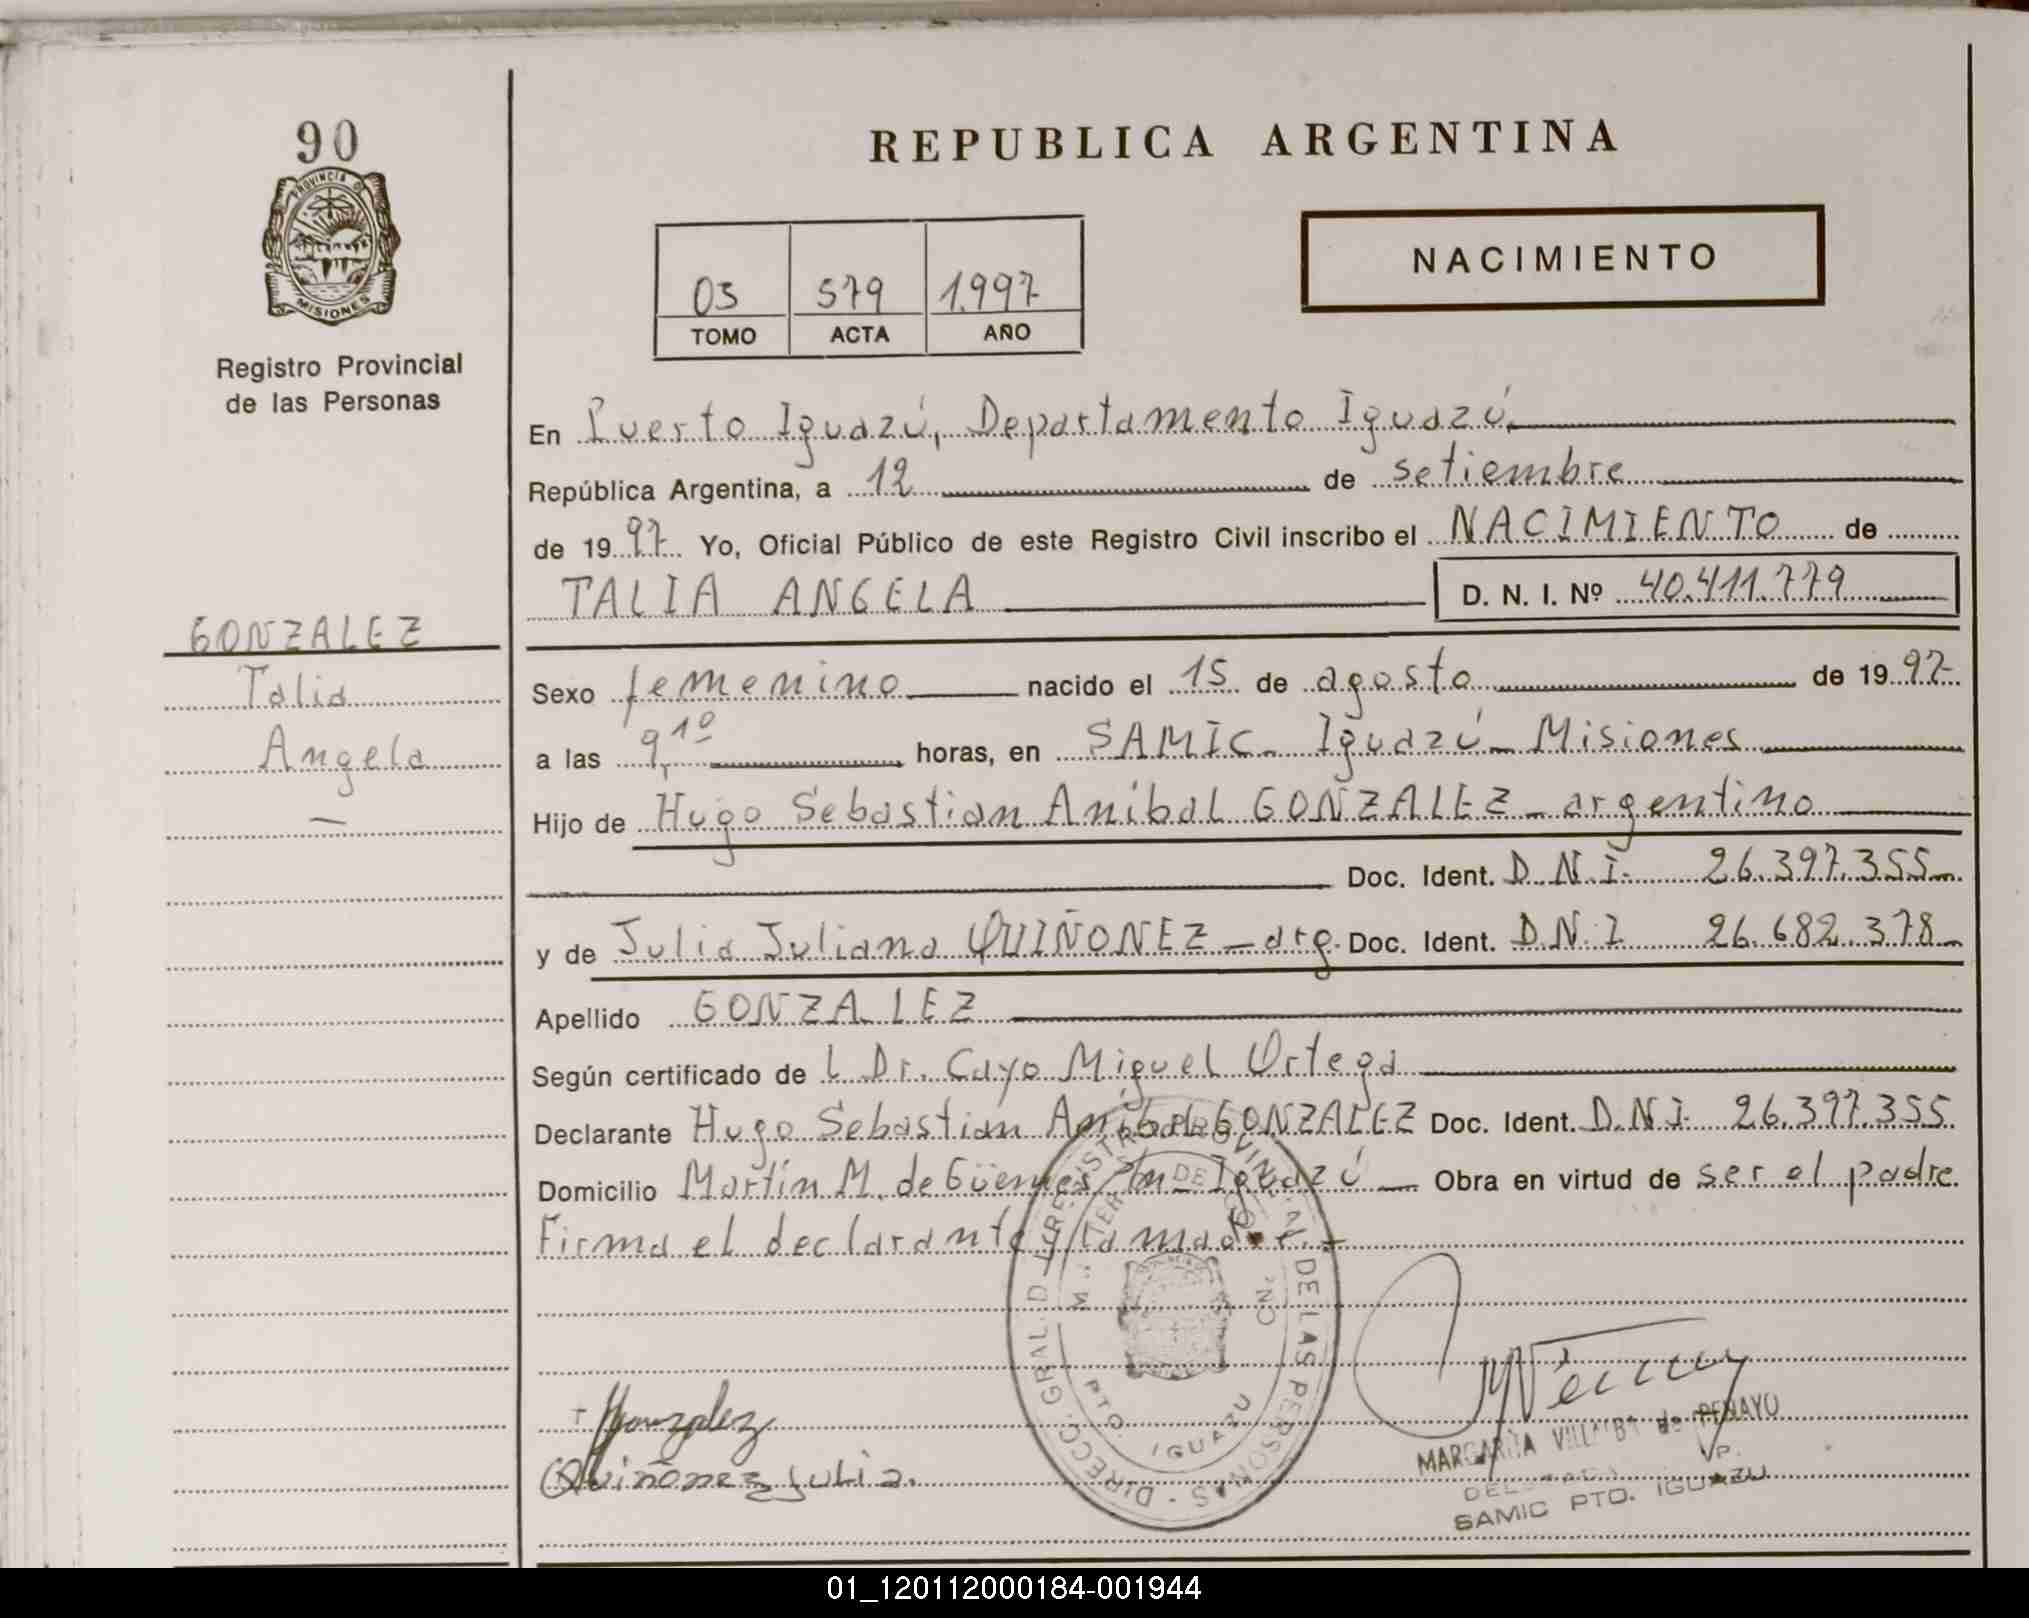 90
PROVINCIA DE
MISIONES
Registro Provincial
de las Personas
GONZALEZ
Talia
Angela
—
REPUBLICA ARGENTINA
NACIMIENTO
03 579 1.997
TOMO ACTA AÑO
En Puerto Iguazú, Departamento Iguazú
República Argentina, a 12 de setiembre
de 1997 Yo, Oficial Público de este Registro Civil inscribo el NACIMIENTO de
TALIA ANGELA D. N. I. Nº 40.411.779
Sexo femenino nacido el 15 de agosto de 1997
a las 9,10 horas, en SAMIC - Iguazú - Misiones
Hijo de Hugo Sebastian Anibal GONZALEZ - argentino
Doc. Ident. D.N.I. 26.397.355
y de Julia Juliana QUIÑONEZ - arg. Doc. Ident. D.N.I. 26.682.378
Apellido GONZALEZ
Según certificado de l Dr. Cayo Miguel Ortega
Declarante Hugo Sebastian Anibal GONZALEZ Doc. Ident. D.N.I. 26.397.355
Domicilio Martín M. de Güemes s/n - Iguazú - Obra en virtud de ser el padre.
Firma el declarante y la madre.-
DIRECC. GRAL. D. REGISTRO PROVINCIAL DE LAS PERSONAS
PTO. IGUAZU
Gonzalez
Quiñonez Julia.
MARGARITA VILLALBA de PENAYO
DELEGADA
SAMIC PTO. IGUAZU
01_120112000184-001944